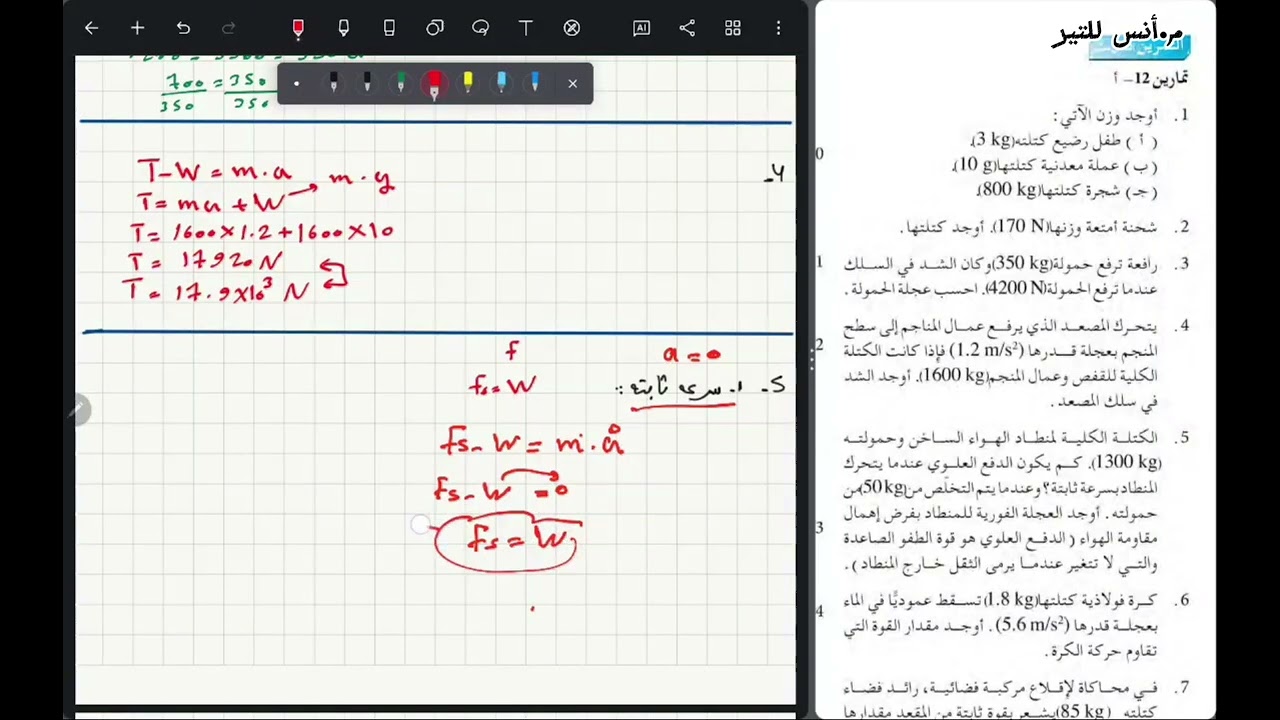 700 = 350
350 350
T-W = m.a
m.g
T = ma + W
T = 1600×1.2 + 1600×10
T = 17920 N
T = 17.9×10³ N
4-
f
a = 0
fs = W
5- 1- سرعة ثابتة :
fs - W = m.a 0
fs - W = 0
fs = W
م.أنس للتير
تمارين 12– أ
1. أوجد وزن الآتي:
( أ ) طفل رضيع كتلته(3 kg).
(ب) عملة معدنية كتلتها(10 g).
(جـ) شجرة كتلتها(800 kg).
2. شحنة أمتعة وزنها(170 N). أوجد كتلتها.
3. رافعة ترفع حمولة(350 kg)وكان الشد في السلك
عندما ترفع الحمولة(4200 N). احسب عجلة الحمولة.
4. يتحرك المصعد الذي يرفع عمال المناجم إلى سطح
المنجم بعجلة قدرها (1.2 m/s²) فإذا كانت الكتلة
الكلية للقفص وعمال المنجم(1600 kg). أوجد الشد
في سلك المصعد.
5. الكتلة الكلية لمنطاد الهواء الساخن وحمولته
(1300 kg). كم يكون الدفع العلوي عندما يتحرك
المنطاد بسرعة ثابتة؟ وعندما يتم التخلّص من(50 kg)من
حمولته. أوجد العجلة الفورية للمنطاد بفرض إهمال
مقاومة الهواء ( الدفع العلوي هو قوة الطفو الصاعدة
والتي لا تتغير عندما يرمى الثقل خارج المنطاد ).
6. كرة فولاذية كتلتها(1.8 kg) تسقط عموديًّا في الماء
بعجلة قدرها (5.6 m/s²). أوجد مقدار القوة التي
تقاوم حركة الكرة.
7. في محاكاة لإقلاع مركبة فضائية، رائد فضاء
كتلته (85 kg)يشعر بقوة ثابتة من المقعد مقدارها